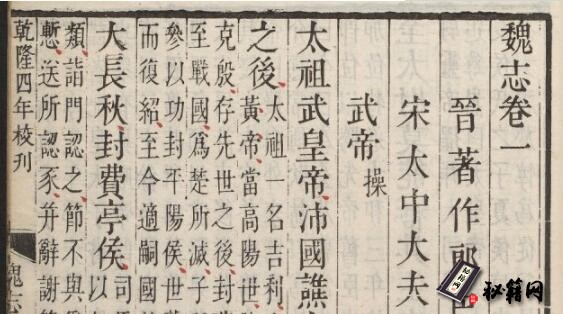 魏志卷一
晉著作郎
宋太中大夫
武帝操
太祖武皇帝沛國譙
之後太祖一名吉利
黃帝當高陽世
克殷存先世之後封
至戰國爲楚所滅子
參以功封平陽侯世
而復紹至今適嗣國
大長秋封費亭侯司
以
類詣門認之節不與
慙送所認豕并辭謝
乾隆四年校刊
魏志
秘籍网